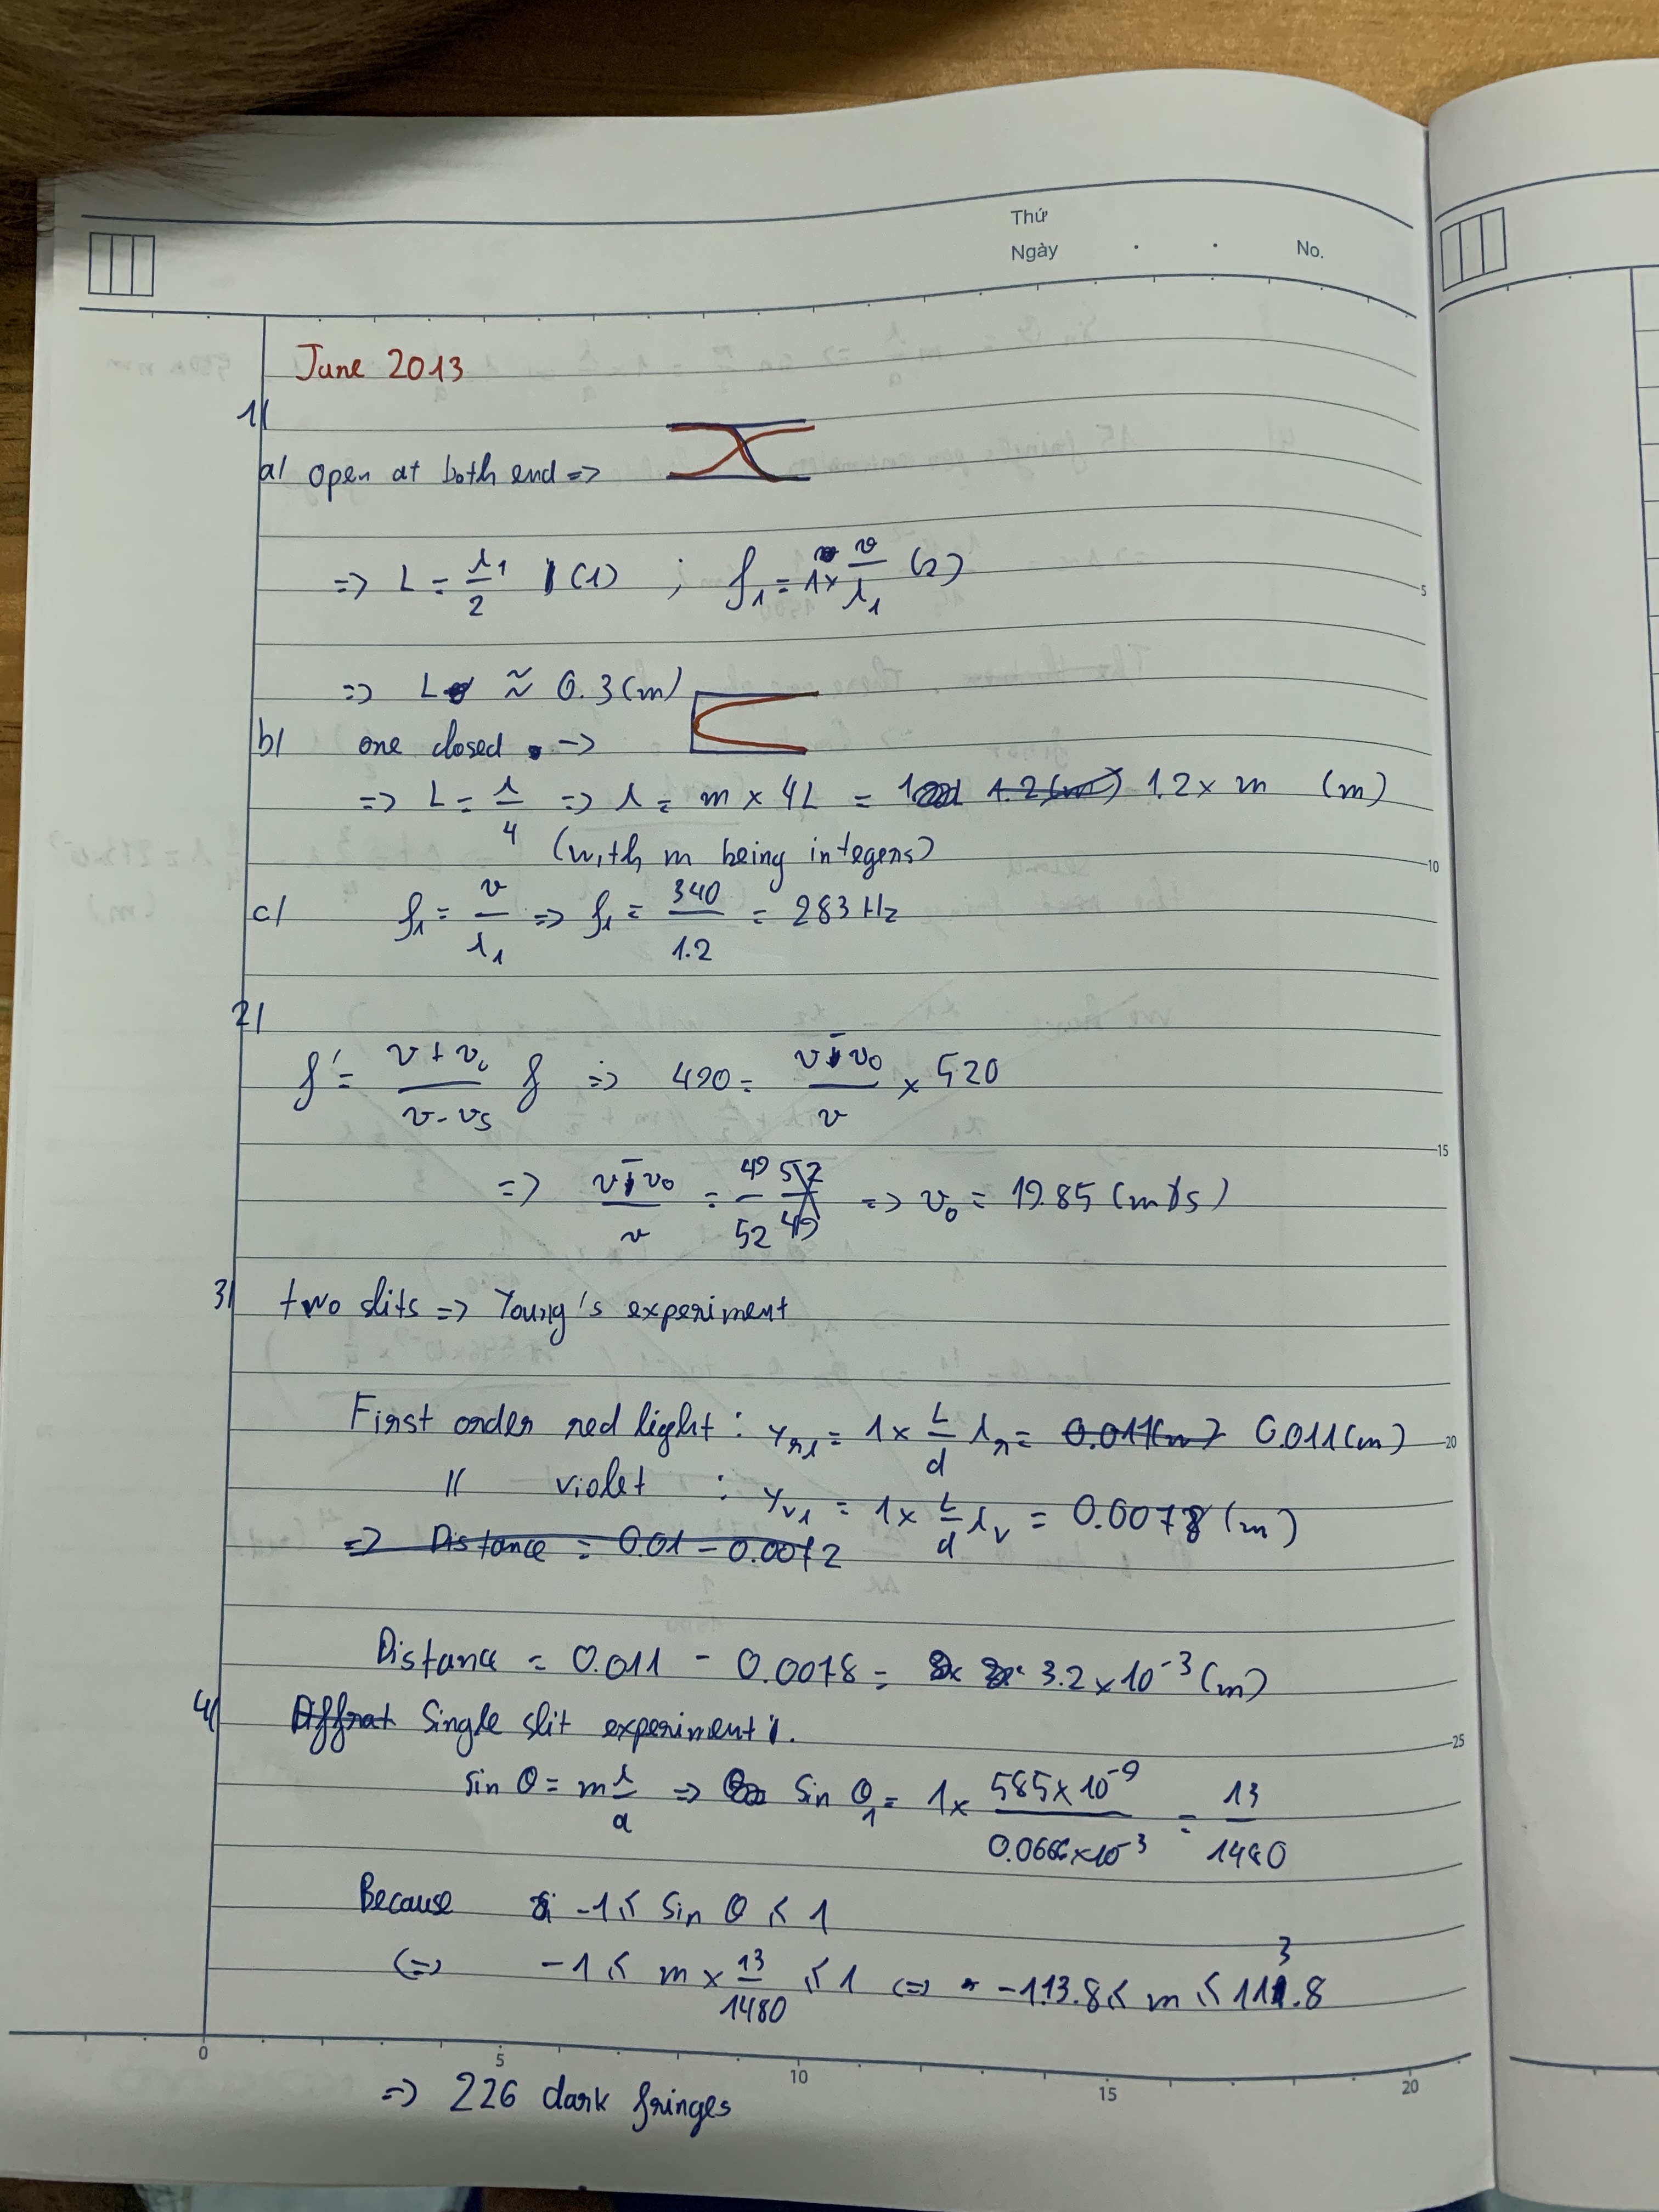 Thứ
Ngày . . No.
June 2013
1/
a/ Open at both end =>
=> L = λ1/2 (1) ; f1 = 1 × v/λ1 (2)
=> L ≈ 0.3 (m)
b/ one closed ->
=> L = λ/4 => λ = m × 4L = 1.2(m) 1.2 × m (m)
(with m being integers)
c/ f1 = v/λ1 => f1 = 340/1.2 = 283 Hz
2/
f' = (v + vo)/(v - vs) f => 490 = (v - vo)/v × 520
=> (v - vo)/v = 49/52 52/49 => vo = 19.85 (m/s)
3/ two slits => Young's experiment
First order red light : yr1 = 1 × L/d λr = 0.011(m) 0.011 (m)
" violet : yv1 = 1 × L/d λv = 0.0078 (m)
=> Distance = 0.01 - 0.0072
Distance = 0.011 - 0.0078 = 3.2 × 10⁻³ (m)
4/ Diffrat Single slit experiment.
sin θ = m λ/a => sin θ1 = 1 × (585 × 10⁻⁹)/(0.0666 × 10⁻³) = 13/1480
Because -1 ≤ sin θ ≤ 1
(=) -1 ≤ m × 13/1480 ≤ 1 (=) -113.8 ≤ m ≤ 113.8
=> 226 dark fringes
0 5 10 15 20
5
10
15
20
25